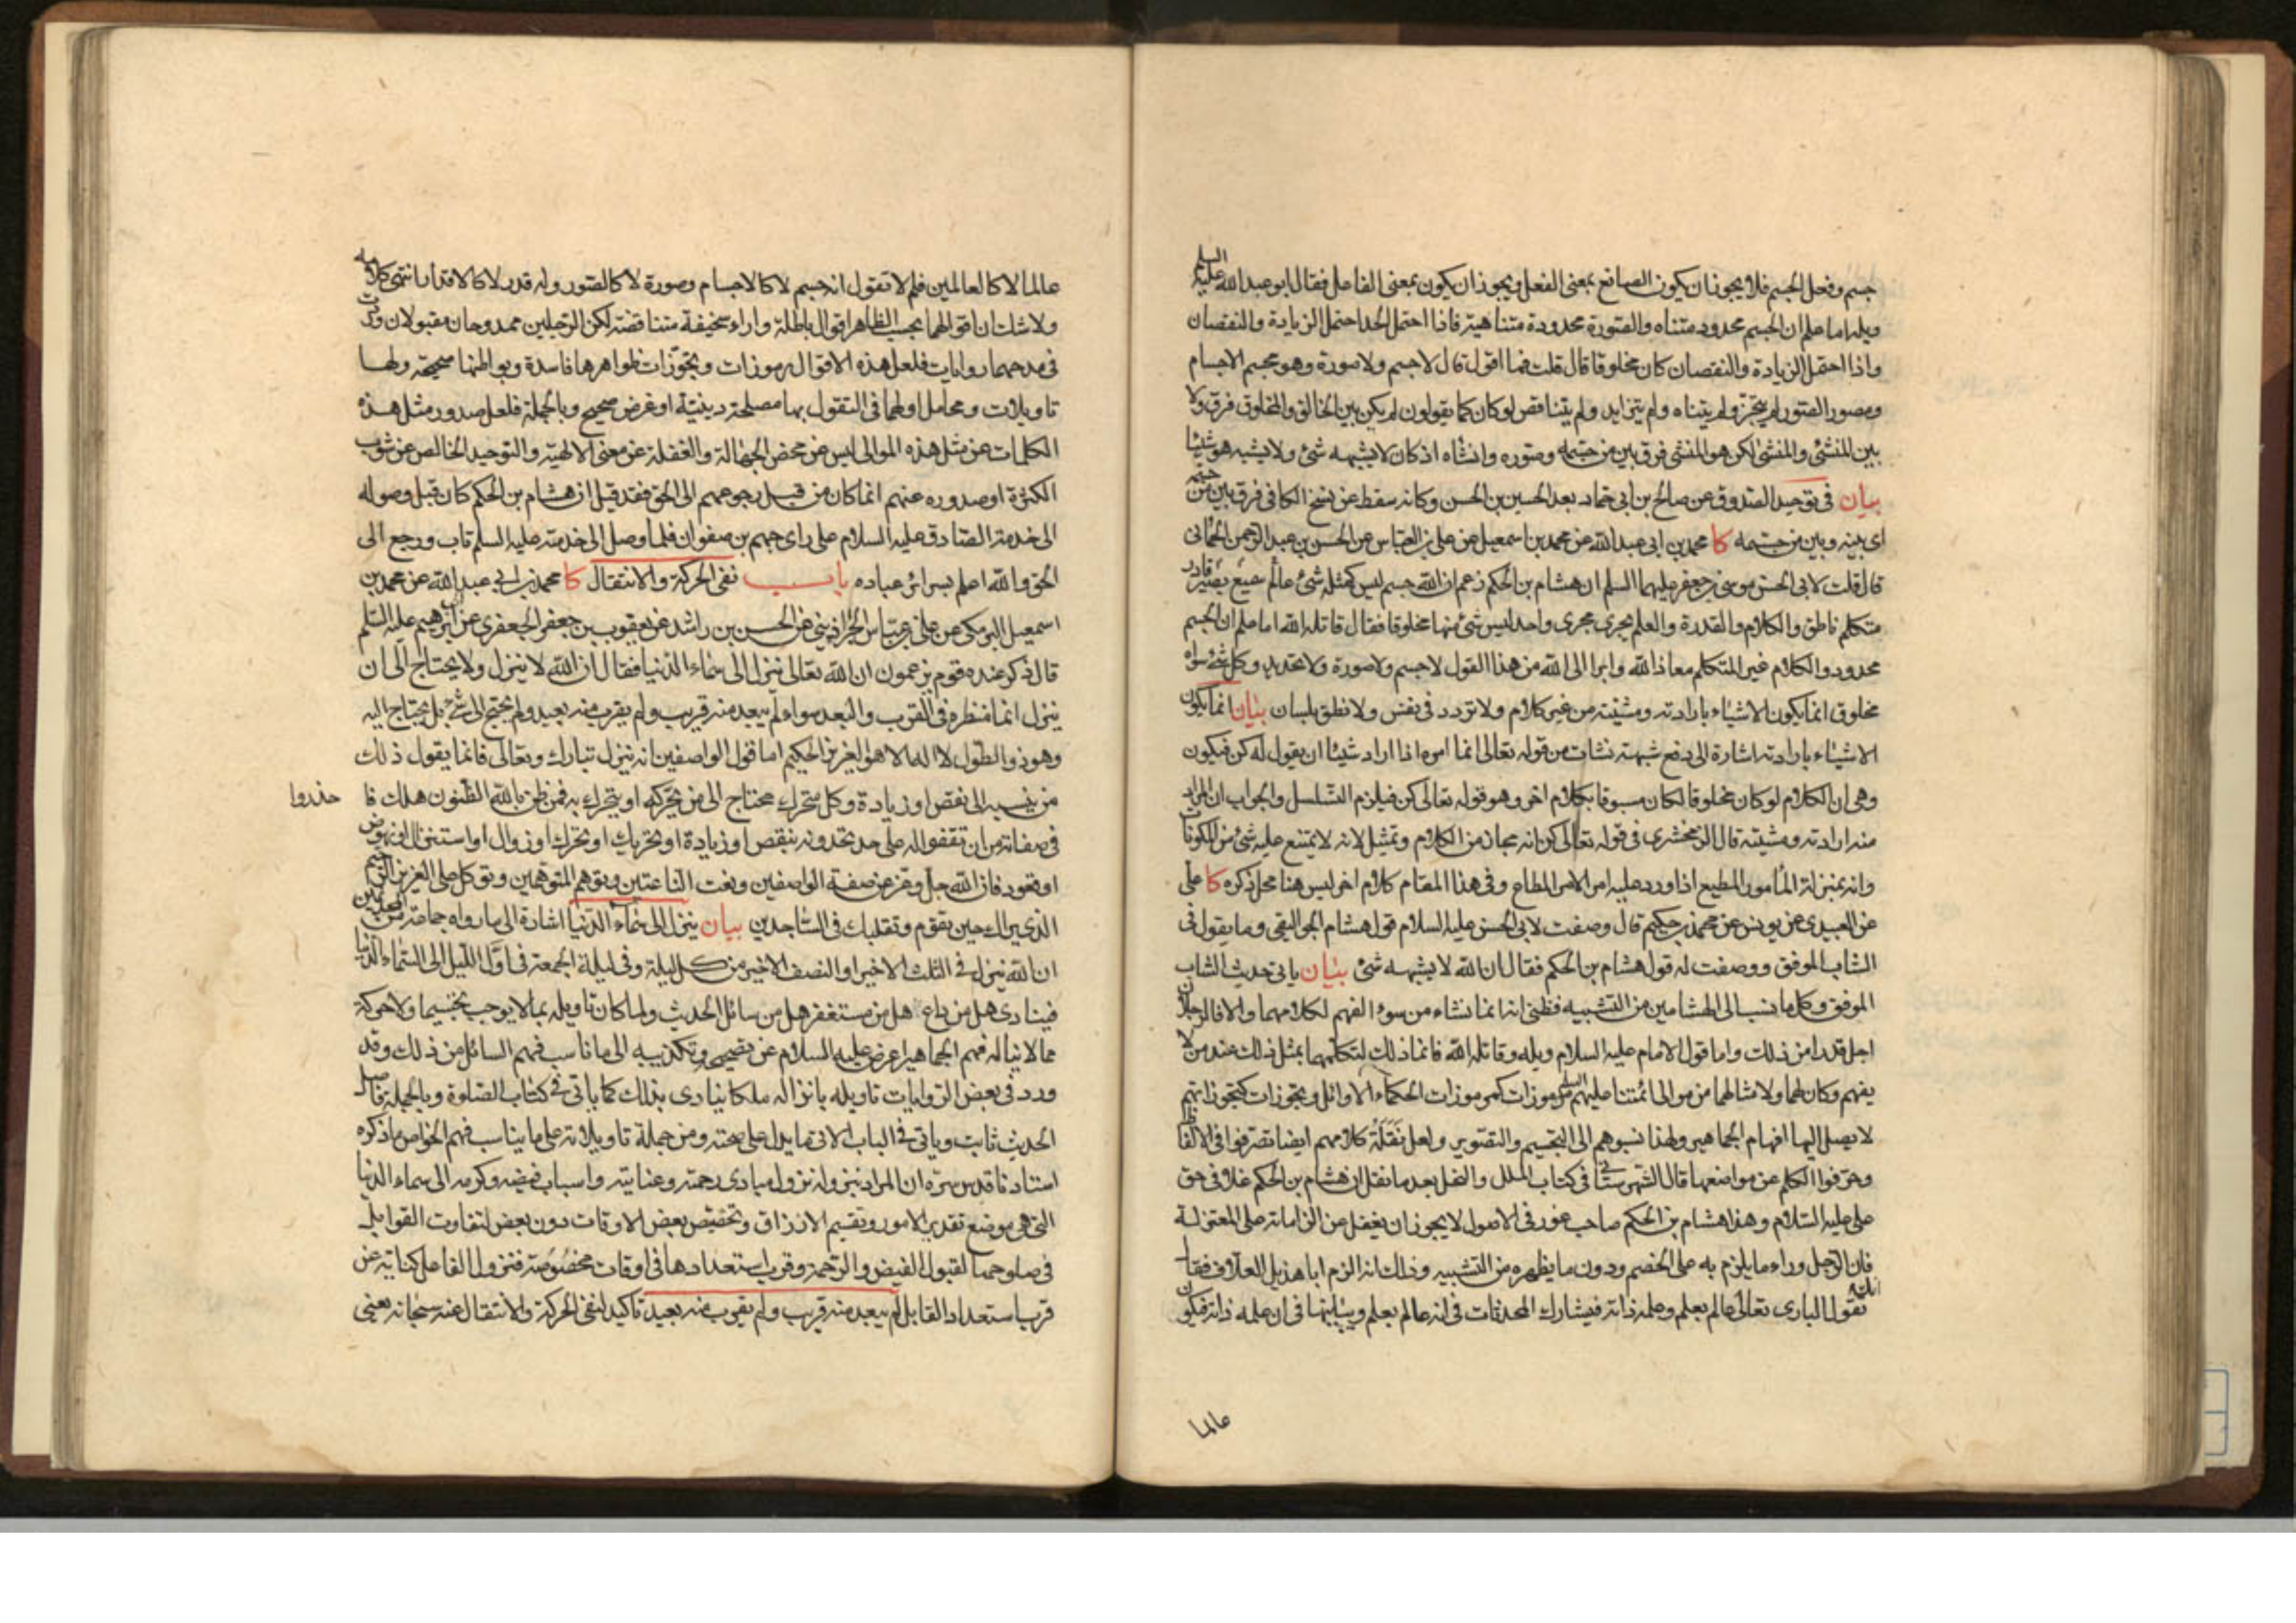 جسم وفعل الجسم فلا يجوز ان يكون الصانع بمعنى الفعل ويجوز ان يكون بمعنى الفاعل فقال ابو عبد الله عليه السلم
ويله اما علم ان الجسم محدود متناه والصورة محدودة متناهية فاذا احتمل الحد احتمل الزيادة والنقصان
واذا احتمل الزيادة والنقصان كان مخلوقا قال قلت فما اقول قال لا جسم ولا صورة وهو مجسم الاجسام
ومصور الصور لم يتجزّ ولم يتناه ولم يتزايد ولم يتناقص لو كان كما يقولون لم يكن بين الخالق والمخلوق فرق ولا
بين المنشئ والمنشئ لكن هو المنشئ فرق بين من جسّمه وصوره وانشاه اذ كان لا يشبهه شئ ولا يشبه هو شيئا
بيان فى توحيد الصدوق عن صالح بن ابى حماد بعد الحسين بن الحسن وكانه سقط عن نسخ الكافى فرق بين من جسّمه
اى بينه وبين من جسّمه كا محمد بن ابى عبد الله عن محمد بن اسمعيل عن على بن العباس عن الحسن بن عبد الرحمن الحمانى
قال قلت لابى الحسن موسى بن جعفر عليهما السلم ان هشام بن الحكم زعم ان الله جسم ليس كمثله شئ عالم سميع بصير قادر
متكلم ناطق والكلام والقدرة والعلم يجرى مجرى واحد ليس شئ منها مخلوقا فقال قاتله الله اما علم ان الجسم
محدود والكلام غير المتكلم معاذ الله وابرا الى الله من هذا القول لا جسم ولا صورة ولا تحديد وكل شئ سواه
مخلوق انما يكون الاشياء بارادته ومشيته من غير كلام ولا تردد فى نفس ولا نطق بلسان بيان انما يكون
الاشياء بارادته اشارة الى دفع شبهة نشات من قوله تعالى انما امره اذا اراد شيئا ان يقول له كن فيكون
وهى ان الكلام لو كان مخلوقا لكان مسبوقا بكلام اخر وهو قوله تعالى كن فيلزم التسلسل والجواب ان المراد
منه ارادته ومشيته قال الزمخشرى فى قوله تعالى كن انه مجاز من الكلام وتمثيل لانه لا يمتنع عليه شئ من المكونات
وانه بمنزلة المأمور المطيع اذا ورد عليه امر الامر المطاع وفى هذا المقام كلام اخر ليس هنا محل ذكره كا على
عن العبيدى عن يونس عن محمد بن حكيم قال وصفت لابى الحسن عليه السلام قول هشام الجواليقى وما يقول فى
الشاب الموفق ووصفت له قول هشام بن الحكم فقال ان الله لا يشبهه شئ بيان ياتى حديث الشاب
الموفق وكل ما ينسب الى الهشامين من التشبيه فظنى انه انما نشاء من سوء الفهم لكلامهما والا فالرجلان
اجل قدرا من ذلك واما قول الامام عليه السلام ويله وقاتله الله فانما ذلك لتكلمهما بمثل ذلك عند من لا
يفهم وكان لهما ولامثالهما من موالى ائمتنا عليهم السلم مرموزات كمرموزات الحكماء الاوائل وتجوزات كتجوزاتهم
لا يصل اليها افهام الجماهير ولهذا نسبوهم الى التجسيم والتصوير ولعل نَقَلَةُ كلامهم ايضا تصرفوا فى الالفاظ
وحرّفوا الكلم عن مواضعها قال الشهرستانى فى كتاب الملل والنحل بعد ما نقل ان هشام بن الحكم غلا فى حق
على عليه السلام وهذا هشام بن الحكم صاحب غور فى الاصول لا يجوز ان يغفل عن الزاماته على المعتزلة
فان الرجل وراء ما يلزم به على الخصم ودون ما يظهره من التشبيه وذلك انه الزم ابا هذيل العلاف فقال انك
تقول البارى تعالى عالم بعلم وعلمه ذاته فيشارك المحدثات فى انه عالم بعلم ويباينها فى ان علمه ذاته فيكون
عالما
عالما لا كالعالمين فلم لا تقول انه جسم لا كالاجسام وصورة لا كالصور وله قدر لا كالاقدار انتهى كلامه
ولا شك ان اقوالهما بحسب الظاهر اقوال باطلة واراء سخيفة متناقضة لكن الرجلين ممدوحان مقبولان ورد
فى مدحهما روايات فلعل هذه الاقوال مرموزات وتجوّزات ظواهرها فاسدة وبواطنها صحيحة ولها
تاويلات ومحامل او لهما فى التقول بها مصلحة دينية او غرض صحيح وبالجملة فلعل صدور مثل هذه
الكلمات عن مثل هذه الموالى ليس عن محض الجهالة والغفلة عن معنى الالهية والتوحيد الخالص عن شوب
الكثرة او صدوره عنهم انما كان من قبل رجوعهم الى الحق فقد قيل ان هشام بن الحكم كان قبل وصوله
الى خدمة الصادق عليه السلام على راى جهم بن صفوان فلما وصل الى خدمته عليه السلم تاب ورجع الى
الحق والله اعلم بسرائر عباده باب نفى الحركة والانتقال كا محمد بن ابى عبد الله عن محمد بن
اسمعيل البرمكى عن على بن عباس الجراذينى عن الحسن بن راشد عن يعقوب بن جعفر الجعفرى عن ابى ابرهيم عليه السلم
قال ذكر عنده قوم يزعمون ان الله تعالى ينزل الى سماء الدنيا فقال ان الله لا ينزل ولا يحتاج الى ان
ينزل انما منظره فى القرب والبعد سواء لم يبعد منه قريب ولم يقرب منه بعيد ولم يحتج الى شئ بل يحتاج اليه
وهو ذو الطول لا اله الا هو العزيز الحكيم اما قول الواصفين انه ينزل تبارك وتعالى فانما يقول ذلك
من ينسبه الى نقص او زيادة وكل متحرك محتاج الى من يحركه او يتحرك به فمن ظن بالله الظنون هلك فا
حذروا
فى صفاته من ان تقفوا له على حد تحدونه بنقص او زيادة او تحريك او تحرك او زوال او استنزال او نهوض
او قعود فان الله جل وعز عن صفة الواصفين ونعت الناعتين وتوهم المتوهمين وتوكل على العزيز الرحيم
الذى يراك حين تقوم وتقلبك فى الساجدين بيان ينزل الى سماء الدنيا اشارة الى ما رواه جماعة من المحدثين
ان الله ينزل فى الثلث الاخير او النصف الاخير من كل ليلة وفى ليلة الجمعة فى اول الليل الى السماء الدنيا
فينادى هل من داع هل من مستغفر هل من سائل الحديث ولما كان تاويله بما لا يوجب تجسيما ولا حركة
مما لا يناله فهم الجماهير اعرض عليه السلام عن تصحيحه وتكذيبه الى ما ناسب فهم السائل من ذلك وقد
ورد فى بعض الروايات تاويله بانزاله ملكا ينادى بذلك كما ياتى فى كتاب الصلوة وبالجملة فاصل
الحديث ثابت وياتى فى الباب الاتى ما يدل على صحته ومن جملة تاويلاته على ما يناسب فهم الخواص ما ذكره
استادنا قدس سره ان المراد بنزوله نزول مبادى رحمته وعنايته واسباب فيضه وكرمه الى سماء الدنيا
التى هى موضع تقدير الامور وتقسيم الارزاق وتخصيص بعض الاوقات دون بعض لتفاوت القوابل
فى صلوحها لقبول الفيض والرحمة وقرب استعدادها فى اوقات مخصُوصة فنزول الفاعل كناية عن
قرب استعداد القابل لم يبعد منه قريب ولم يقرب منه بعيد تاكيد لنفى الحركة والانتقال عنه سبحانه يعنى